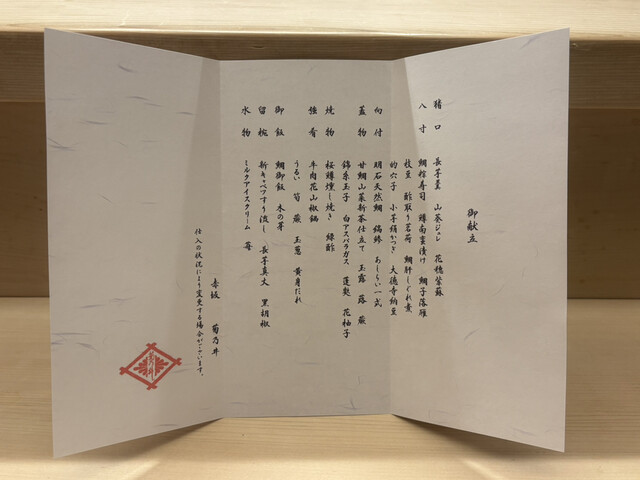 御献立
猪口　長芋羹　山葵ジュレ　花穂紫蘇
八寸　鯛粽寿司　鱒南蛮漬け　鯛子落雁
枝豆　酢取り茗荷　鯛肝しぐれ煮
的穴子　小芋絹かつぎ　大徳寺納豆
向付　明石天然鯛　縞鯵　あしらい一式
蓋物　甘鯛山菜新茶仕立て　玉露　蕗　蕨
錦糸玉子　白アスパラガス　蓬麩　花柚子
焼物　桜鱒燻し焼き　緑酢
強肴　牛肉花山椒鍋
うるい　筍　蕨　玉葱　黄身だれ
御飯　鯛御飯　木の芽
留椀　新キャベツすり流し　長芋真丈　黒胡椒
水物　ミルクアイスクリーム　苺
赤坂　菊乃井
仕入の状況により変更する場合がございます。